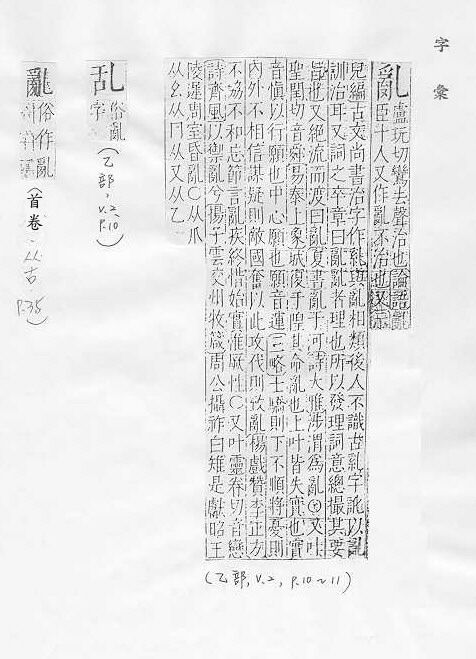 字彙
亂 盧玩切鸞去聲治也論語
亂臣十人又作亂不治也又
見編古文尚書治字作亂與亂相類後人不識古亂字訛以亂
訓治耳又詞之卒章曰亂亂者理也所以發理詞意總撮其要
也又絕流而渡曰亂夏書亂于河詩大雅涉渭為亂又叶
聖閏切音舜易泰上象城復于隍其命亂也上叶皆失實也實
音愼以行願也中心願也願音運三略士驕則下不順將憂則
內外不相信謀疑則敵國奮以此攻伐則致亂楊戲贊李正方
不協不和忘節言亂疾終惜始實惟厥性○又叶靈眷切音戀
詩齊風以禦亂兮揚子雲交州牧箴周公攝祚白雉是獻昭王
陵遲周室昏亂○从爪
从幺从冂从又从乙
乱 俗亂
字
(乙部,v.2
P.10)
俗作亂
(首卷,从古
P.35)
(乙部,v.2,P.10~11)